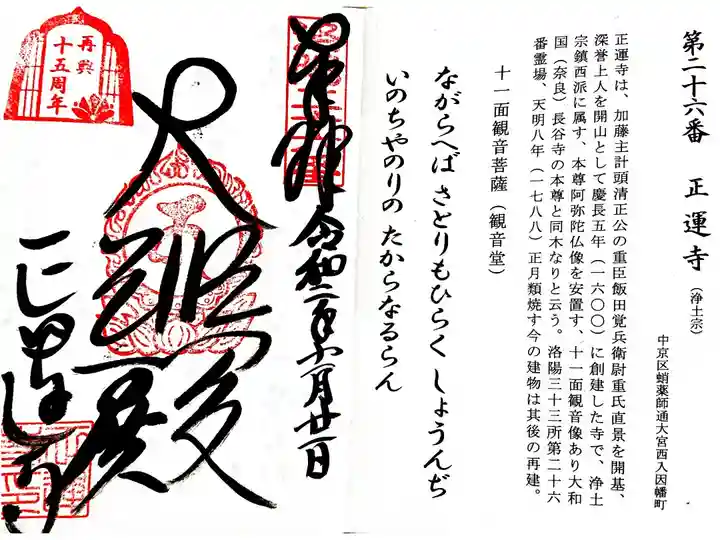 第二十六番 正運寺 (浄土宗)
中京区蛸薬師通大宮西入因幡町
正運寺は、加藤主計頭清正公の重臣飯田覚兵衛尉重氏直景を開基、
深誉上人を開山として慶長五年(一六〇〇)に創建した寺で、浄土
宗鎮西派に属す、本尊阿弥陀仏像を安置す、十一面観音像あり大和
国(奈良)長谷寺の本尊と同木なりと云う。洛陽三十三所第二十六
番霊場、天明八年(一七八八)正月類焼す今の建物は其後の再建。
十一面観音菩薩(観音堂)
ながらへば さとりもひらく しょうんぢ
いのちやのりの たからなるらん
奉拝 令和二年十一月廿一日
大悲殿
正運寺
再興
十五周年